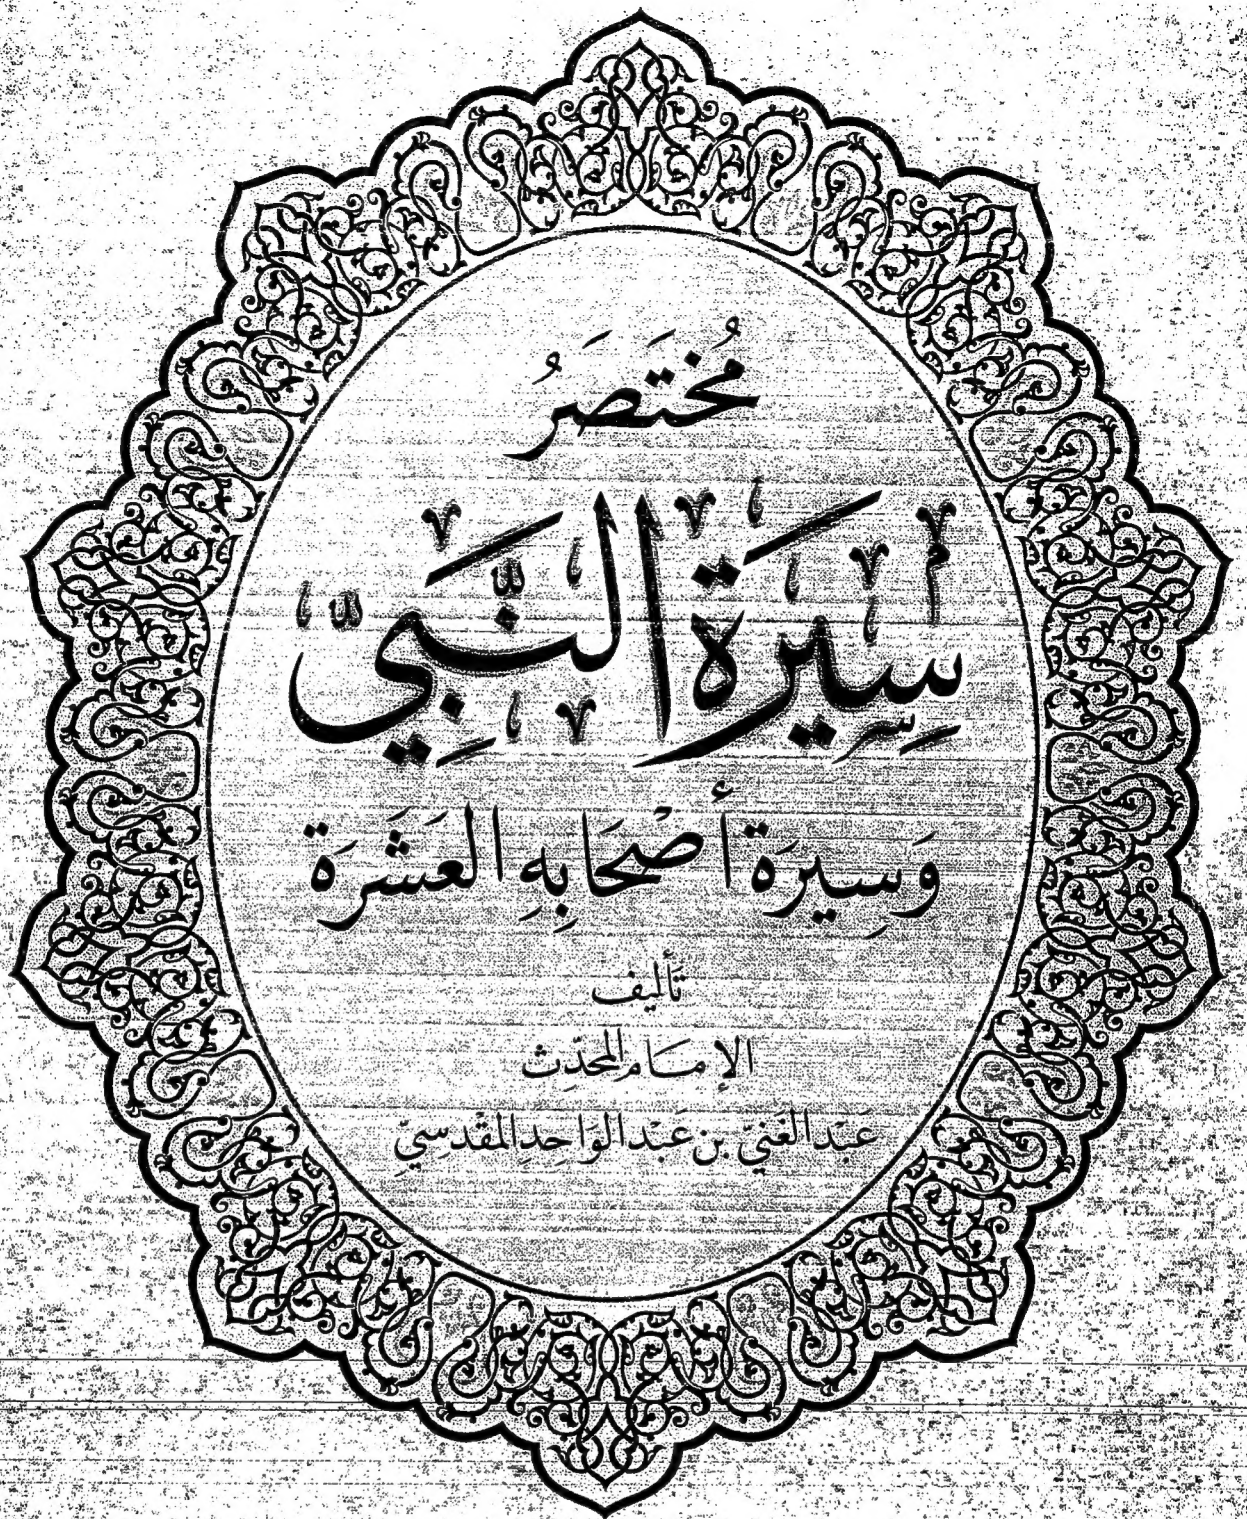 مُختَصَرُ
سِيرَة النَّبِيّ
وَسِيرَة أَصْحَابِهِ العَشَرَة
تَأليف
الإمَام المحدّث
عَبْد الغَنيّ بن عَبْد الوَاحِد المَقْدسِيّ